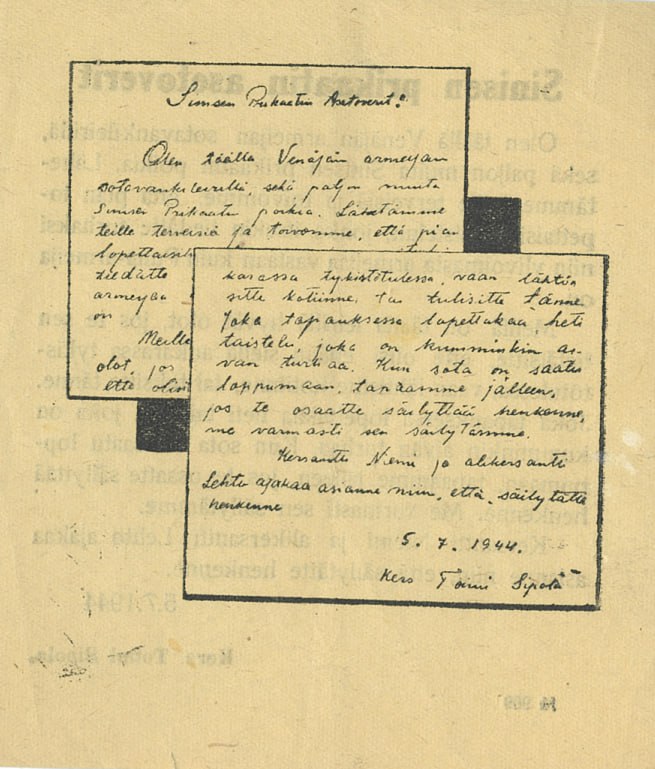 Sinisen Prikaatin Asetoverit!
Olen täällä Venäjän armeijan
sotavankileirillä, sekä paljon muita
Sinisen Prikaatin poikia. Lähetämme
teille terveisiä ja toivomme, että pian
lopettaisit
tiedätte
armeijaa
on
Meille
olot, jos
että olin
kasassa tykistötulessa, vaan lähtisi
sitte kotiinne, tai tulisitte tänne.
Joka tapauksessa lopettakaa heti
taistelu, joka on kumminkin ai-
van turhaa. Kun sota on saatu
loppumaan, tapaamme jälleen,
jos te osaatte säilyttää henkenne,
me varmasti sen säilytämme.
Kersantti Niemi ja alikersantti
Lehto ajakaa asianne niin, että säilytätte
henkenne
5. 7. 1944.
Kers Toivi Sipola